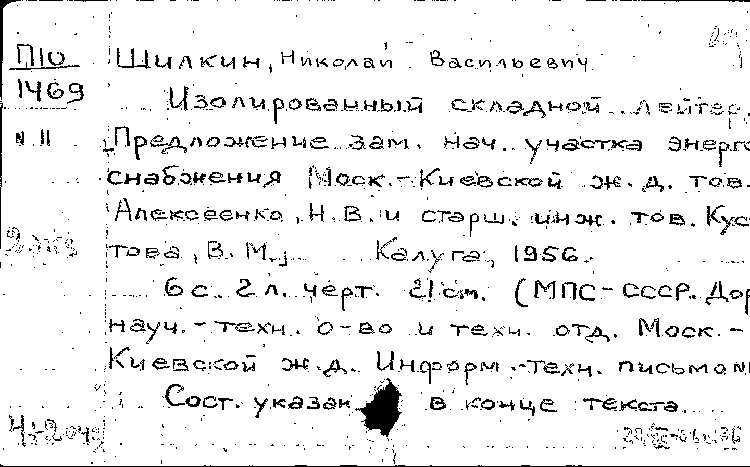 П10
1469
N 11
2 экз
Шилкин, Николай Васильевич
Изолированный складной лейтер.
Предложение зам. нач. участка энерго
снабжения Моск.-Киевской ж.д. тов.
Алексеенко, Н.В. и старш. инж. тов. Кус
това, В.М., Калуга, 1956.
6 с. 2 л. черт. 21 см. (МПС-СССР. Дор
науч.-техн. о-во и техн. отд. Моск.-
Киевской ж.д. Информ.-техн. письмо №
Сост. указан в конце текста